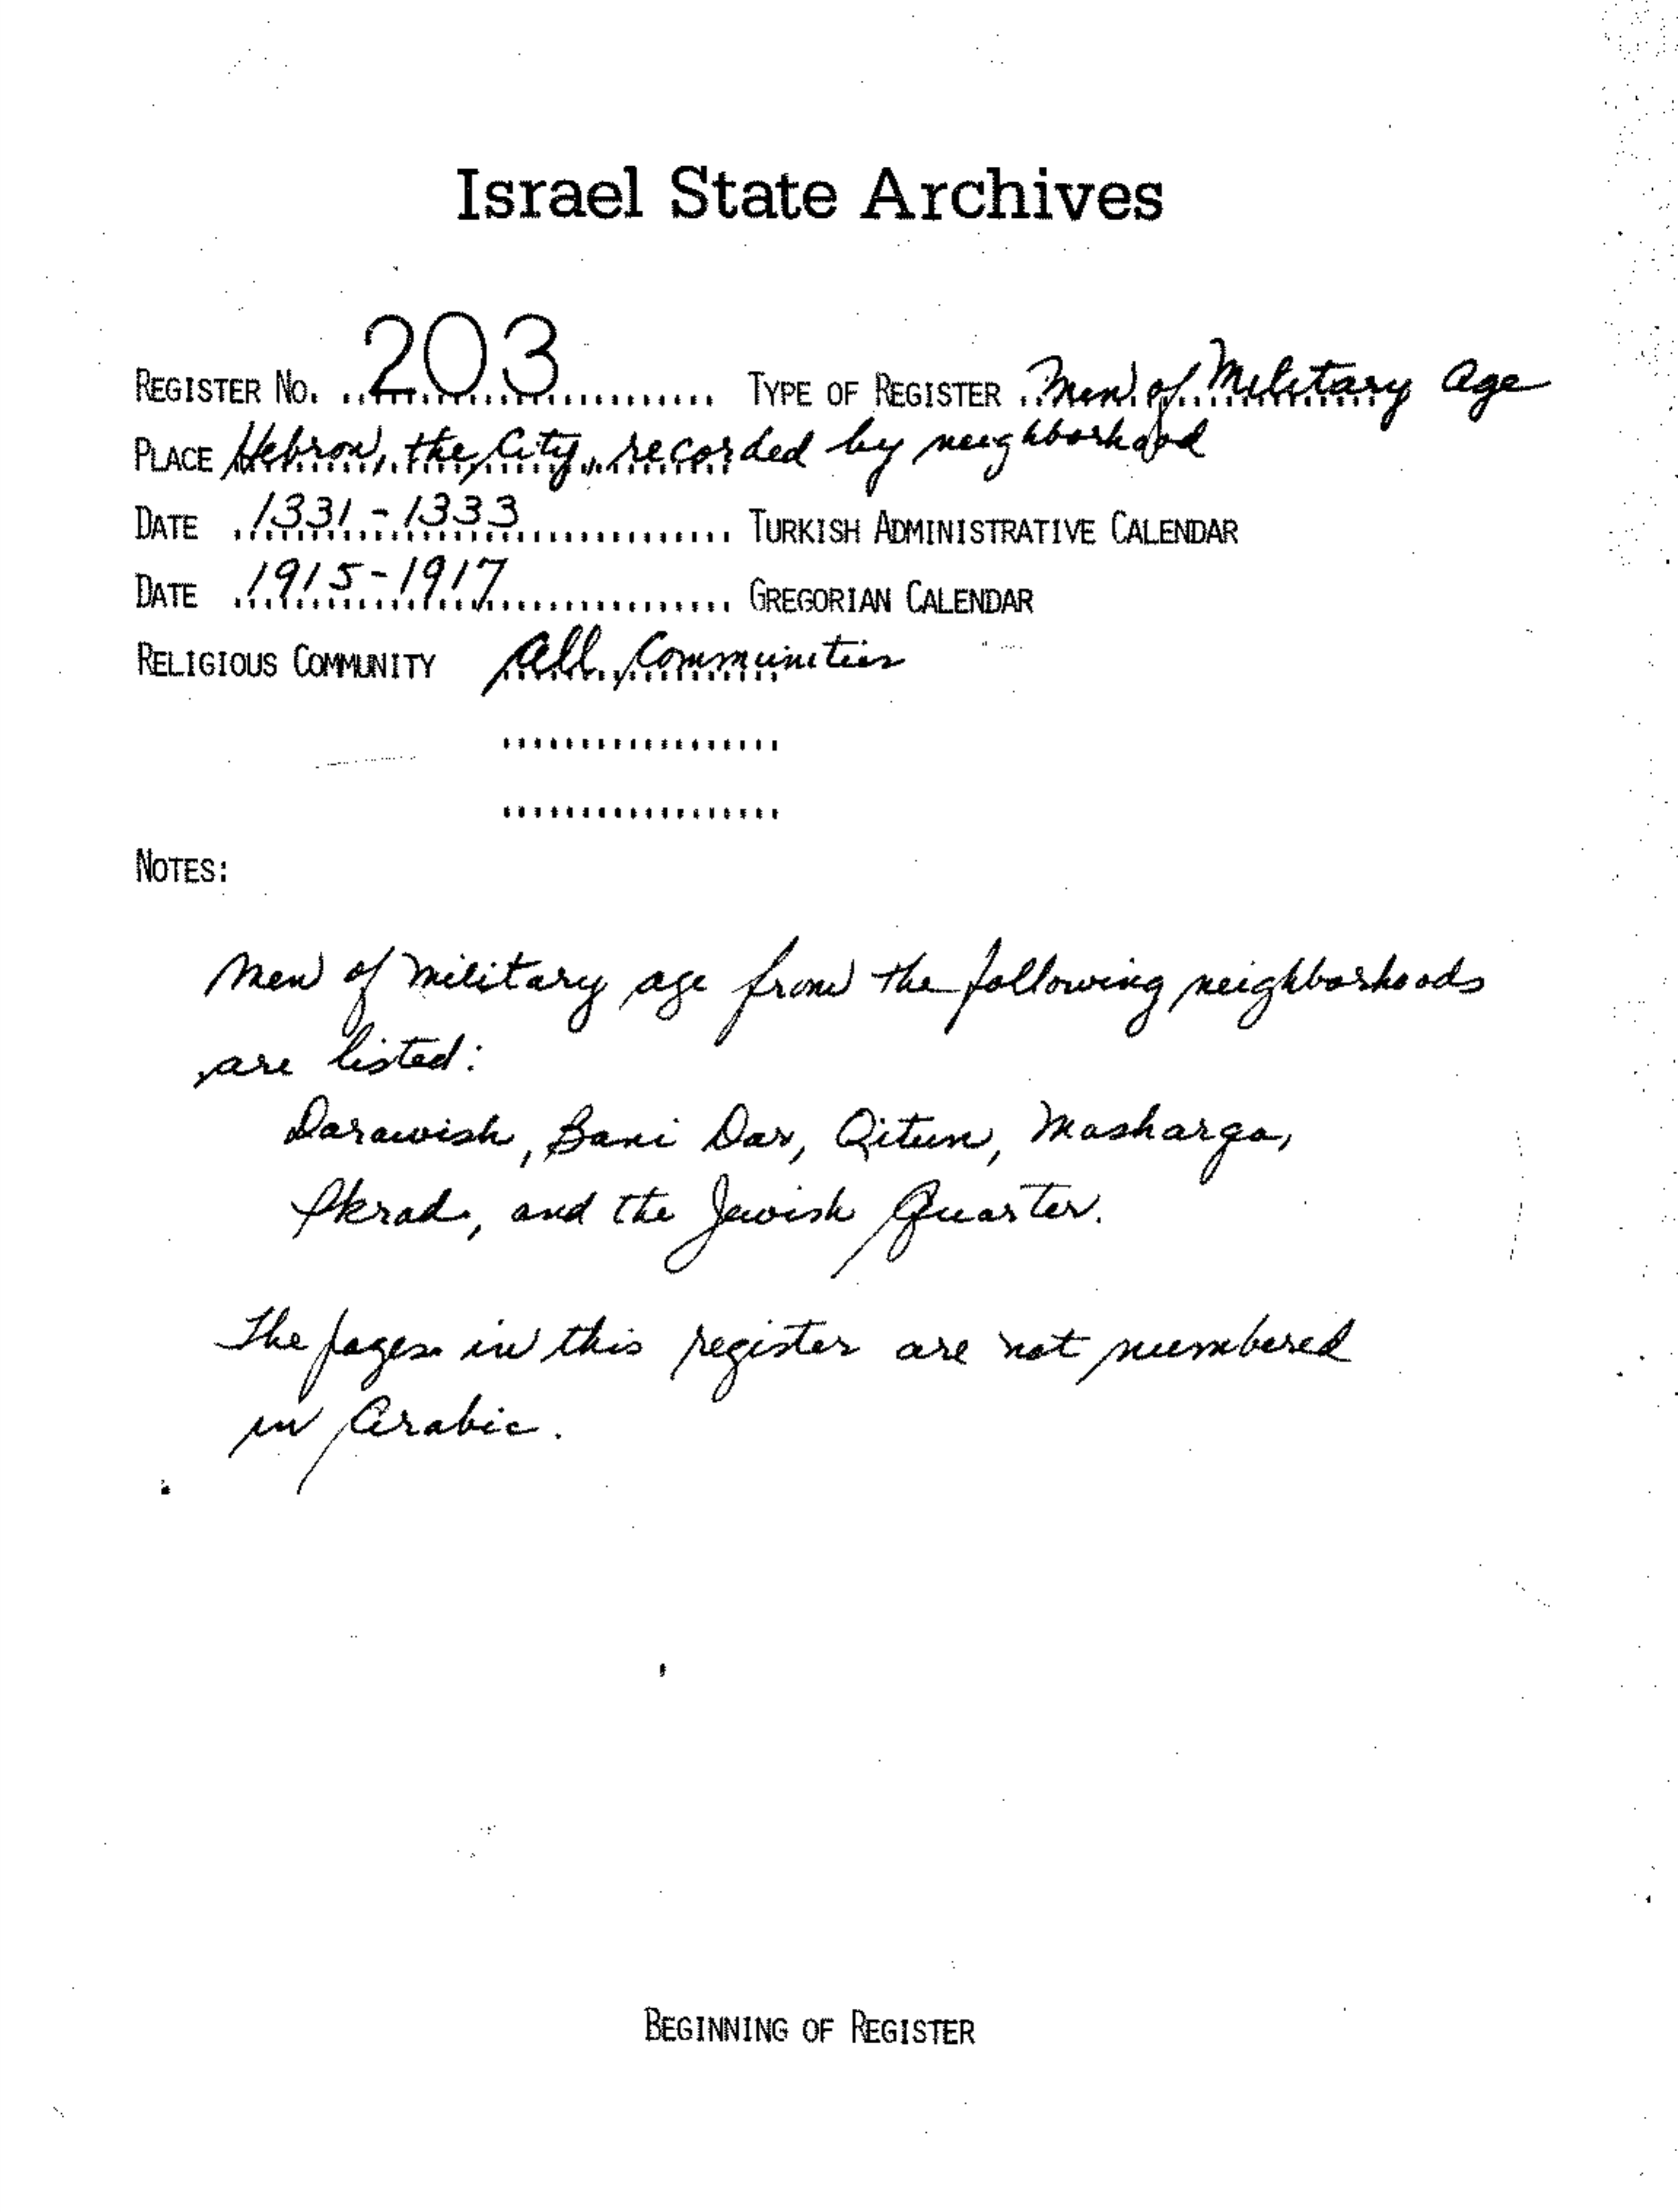 Israel State Archives
REGISTER No. 203 TYPE OF REGISTER Men of Military Age
PLACE Hebron, the City, recorded by neighborhood
DATE 1331-1333 TURKISH ADMINISTRATIVE CALENDAR
DATE 1915-1917 GREGORIAN CALENDAR
RELIGIOUS COMMUNITY All Communities
NOTES:
Men of military age from the following neighborhoods
are listed:
Darawish, Bani Dar, Qitun, Masharga,
Akrad, and the Jewish Quarter.
The pages in this register are not numbered
in Arabic.
BEGINNING OF REGISTER